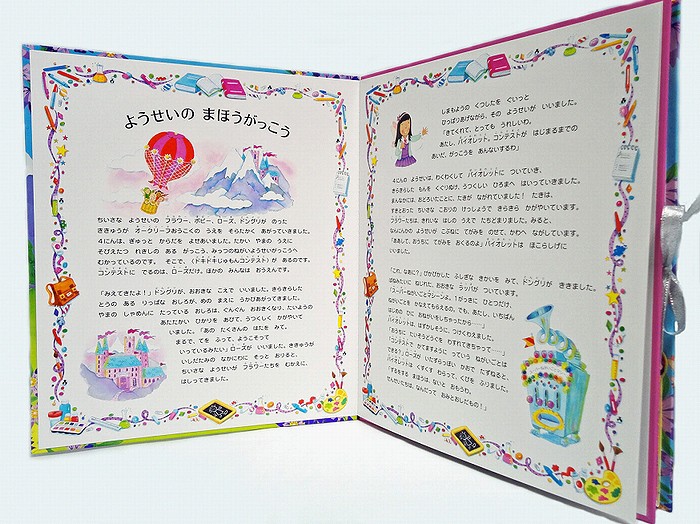 ようせいの まほうがっこう
ちいさな ようせいの フラワー、ポピー、ローズ、ドングリが のった
ききゅうが オークリーフおうこくの うえを そらたかく あがっていきました。
4にんは、ぎゅっと からだを よせあいました。たかい やまの うえに
そびえたつ れきしの ある がっこう、みっつのねがいようせいがっこうへ
むかっているのです。 そこで、〈ドキドキじゅもんコンテスト〉が あるのです。
コンテストに でるのは、ローズだけ。ほかの みんなは おうえんです。
「みえてきたよ!」ドングリが、おおきな こえで いいました。きらきらした
とうの ある りっぱな おしろが、めの まえに うかびあがってきました。
やまの しゃめんに たっている おしろは、ぐんぐん おおきくなり、たいようの
あたたかい ひかりを あびて、うつくしく かがやいて
いました。「あの たくさんの はたを みて。
まるで、てを ふって、ようこそって
いっているみたい」ローズが いいました。ききゅうが
いしだたみの なかにわに そっと おりると、
ちいさな ようせいが フラワーたちを むかえに、
はしってきました。
しまもようの くつしたを ぐいっと
ひっぱりあげながら、その ようせいが いいました。
「きてくれて、とっても うれしいわ。
あたし、バイオレット。コンテストが はじまるまでの
あいだ、がっこうを あんないするわ」
4にんの ようせいは、わくわくして バイオレットに ついていき、
きらきらした もんを くぐりぬけ、うつくしい ひろまへ はいっていきました。
まんなかには、おどろいたことに、たきが ながれていました! たきは、
すきとおった ちいさな こおりの けっしょうで きらきら かがやいています。
フラワーたちは、きれいな はしの うえで たちどまりました。みると、
なんにんかの ようせいが こぶねに てがみを のせて、かわへ ながしています。
「ああして、おうちに てがみを おくるのよ」バイオレットは ほこらしげに
いいました。
「これ、なあに?」ぴかぴかした ふしぎな きかいを みて、ドングリが ききました。
ばねみたいに ねじれた、おおきな ラッパが ついています。
「スーパーねがいごとマシーンよ。1がっきに ひとつだけ、
ねがいごとを かなえてもらえるの。でも、あたし、いちばん
はじめの ひに おねがいをしちゃったから……」
バイオレットは、はずかしそうに、つけくわえました。
「おうちの たいそうどうぐを わすれてきちゃって……」
「コンテストで かてますように っていう ねがいごとは
できる?」ローズが いたずらっぽい かおで たずねると、
バイオレットは くすくす わらって、くびを ふりました。
「ずるをする まほうは、ないと おもうわ。
せんせいたちは、なんだって おみとおしだもの!」